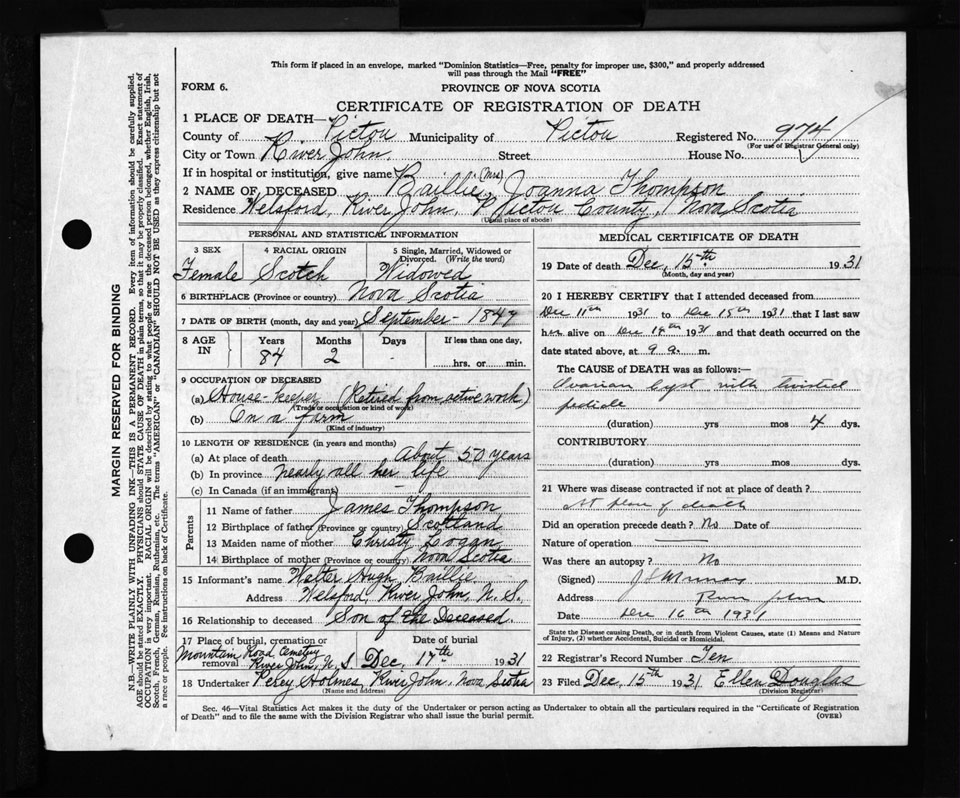 This form if placed in an envelope, marked "Dominion Statistics—Free, penalty for improper use, $300," and properly addressed
will pass through the Mail "FREE"
FORM 6.
PROVINCE OF NOVA SCOTIA
CERTIFICATE OF REGISTRATION OF DEATH
1 PLACE OF DEATH—
County of Pictou Municipality of Pictou Registered No. 974
(For use of Registrar General only)
City or Town River John Street House No.
If in hospital or institution, give name
2 NAME OF DECEASED Baillie, (Mrs) Joanna Thompson
Residence Welsford, River John, Pictou County, Nova Scotia
(Usual place of abode)
PERSONAL AND STATISTICAL INFORMATION
3 SEX 4 RACIAL ORIGIN 5 Single, Married, Widowed or Divorced. (Write the word)
Female Scotch Widowed
6 BIRTHPLACE (Province or country) Nova Scotia
7 DATE OF BIRTH (month, day and year) September - 1847
8 AGE IN Years Months Days If less than one day,
84 2 - hrs. or min.
9 OCCUPATION OF DECEASED
(a) House-keeper (Retired from active work)
(Trade or occupation or kind of work)
(b) On a farm
(Kind of industry)
10 LENGTH OF RESIDENCE (in years and months)
(a) At place of death About 50 years
(b) In province nearly all her life
(c) In Canada (if an immigrant) -
Parents
11 Name of father James Thompson
12 Birthplace of father (Province or country) Scottland
13 Maiden name of mother Christy Logan
14 Birthplace of mother (Province or country) Nova Scotia
15 Informant's name Walter Hugh Baillie
Address Welsford, River John, N. S.
16 Relationship to deceased Son of the Deceased.
17 Place of burial, cremation or removal Date of burial
Mountain Road Cemetery
River John, N. S. Dec, 17th 1931
18 Undertaker Percy Holmes, River John, Nova Scotia
(Name and address)
MEDICAL CERTIFICATE OF DEATH
19 Date of death Dec, 15th 1931
(Month, day and year)
20 I HEREBY CERTIFY that I attended deceased from
Dec 11th 1931 to Dec 15th 1931 that I last saw
her alive on Dec 14th 1931 and that death occurred on the
date stated above, at 9 a. m.
The CAUSE OF DEATH was as follows:—
Ovarian Cyst with twisted
pedicle
(duration) yrs mos 4 dys.
CONTRIBUTORY
(duration) yrs mos dys.
21 Where was disease contracted if not at place of death?
At place of death
Did an operation precede death? No Date of
Nature of operation
Was there an autopsy? No
(Signed) M.D.
Address River John
Date Dec 16th 1931
State the Disease causing Death, or in death from Violent Causes, state (1) Means and Nature
of Injury, (2) whether Accidental, Suicidal or Homicidal.
22 Registrar's Record Number Ten
23 Filed Dec, 15th 1931 Ellen Douglas
(Division Registrar)
Sec. 46—Vital Statistics Act makes it the duty of the Undertaker or person acting as Undertaker to obtain all the particulars required in the "Certificate of Registration
of Death" and to file the same with the Division Registrar who shall issue the burial permit.
(OVER)
MARGIN RESERVED FOR BINDING
N.B.—WRITE PLAINLY WITH UNFADING INK—THIS IS A PERMANENT RECORD. Every item of information should be carefully supplied.
AGE should be stated EXACTLY. PHYSICIANS should STATE CAUSE OF DEATH in plain terms, so that it may be properly classified. Exact statement of
OCCUPATION is very important. RACIAL ORIGIN will be described by stating to what people or race the deceased person belonged, whether English, Irish,
Scotch, French, German, Russian, Ruthenian, etc. The terms "AMERICAN" or "CANADIAN" SHOULD NOT BE USED as they express citizenship but not
a race or people. See instructions on back of Certificate.